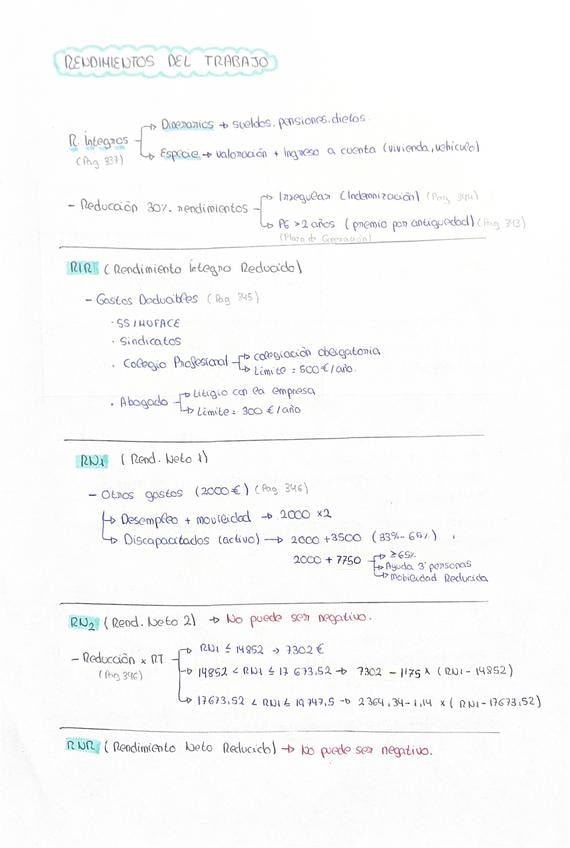 RENDIMIENTOS DEL TRABAJO
R. Íntegros (Pag 337)
→ Dinerarios → sueldos, pensiones, dietas.
→ Especie → valoración + Ingreso a cuenta (vivienda, vehículo)
- Reducción 30% rendimientos
→ Irregular (Indemnización) (Pag 344)
→ PG > 2 años (premio por antigüedad) (Pag 343)
(Plazo de Generación)
RIR (Rendimiento Íntegro Reducido)
- Gastos Deducibles (Pag 345)
· SS / MUFACE
· Sindicatos
· Colegio Profesional
→ Colegiación obligatoria
→ Límite = 500 €/año.
· Abogado
→ Litigio con la empresa
→ Límite = 300 €/año
RN1 (Rend. Neto 1)
- Otros gastos (2000 €) (Pag 346)
→ Desempleo + movilidad → 2000 x2
→ Discapacitados (activo) → 2000 + 3500 (33% - 65%)
2000 + 7750
→ ≥65%
→ Ayuda 3ª personas
→ Mobilidad Reducida
RN2 (Rend. Neto 2) → No puede ser negativo.
- Reducción x RT (Pag 346)
→ RN1 ≤ 14852 → 7302 €
→ 14852 < RN1 ≤ 17 673,52 → 7302 - 1'75 x (RN1 - 14852)
→ 17673,52 < RN1 ≤ 19 747,5 → 2364,34 - 1,14 x (RN1 - 17673,52)
RNR (Rendimiento Neto Reducido) → No puede ser negativo.